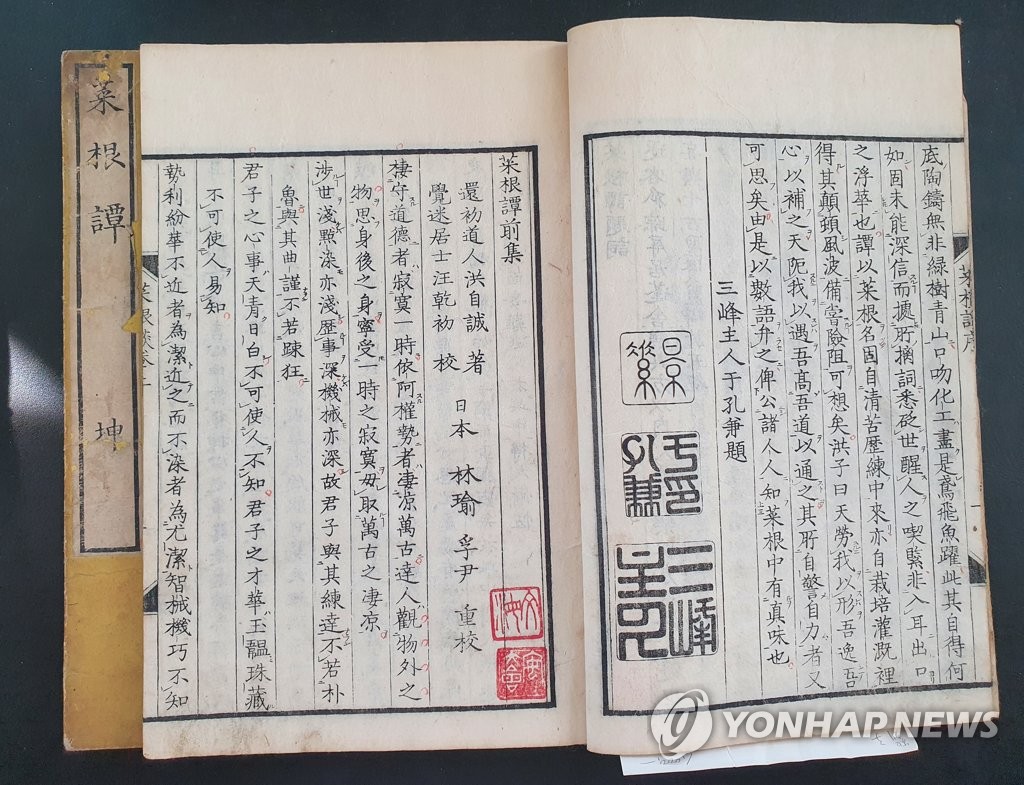 菜根譚
坤
菜根譚序
底陶鋳無非緑樹青山口吻化工盡是鳶飛魚躍此其自得何
如固未能深信而據所摘詞悉砭世醒人之喫緊非入耳出口
之浮華也譚以菜根名固自清苦歴練中來亦自栽培灌溉裡
得其顛頓風波備嘗險阻可想矣洪子曰天勞我以形吾逸吾
心以補之天阨我以遇吾高吾道以通之其所自警自力者又
可思矣由是以數語弁之俾公諸人人知菜根中有真味也
三峰主人于孔兼題
于孔兼印
三峰主人
菜根譚前集
還初道人洪自誠 著
覺迷居士汪乾初 校
日本 林瑜孚尹 重校
棲守道德者寂寞一時依阿權勢者凄凉萬古達人觀物外之
物思身後之身寧受一時之寂寞毋取萬古之凄凉
涉世淺點染亦淺歴事深機械亦深故君子與其練達不若朴
魯與其曲謹不若踈狂
君子之心事天青日白不可使人不知君子之才華玉韞珠藏
不可使人易知
勢利紛華不近者為潔近之而不染者為尤潔智械機巧不知
YONHAP NEWS